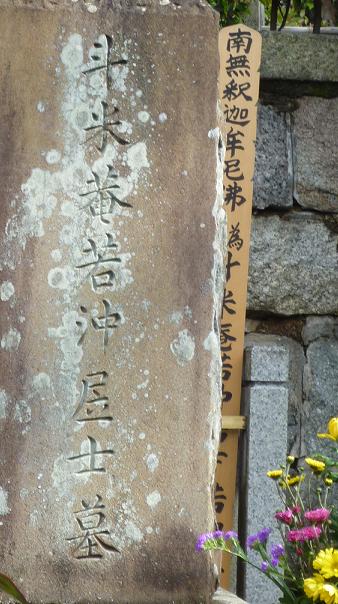 斗米菴若冲居士墓
南無釈迦牟尼佛 為斗米庵若